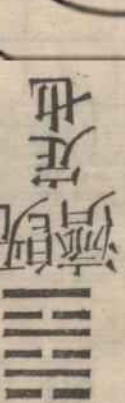 既濟
定也